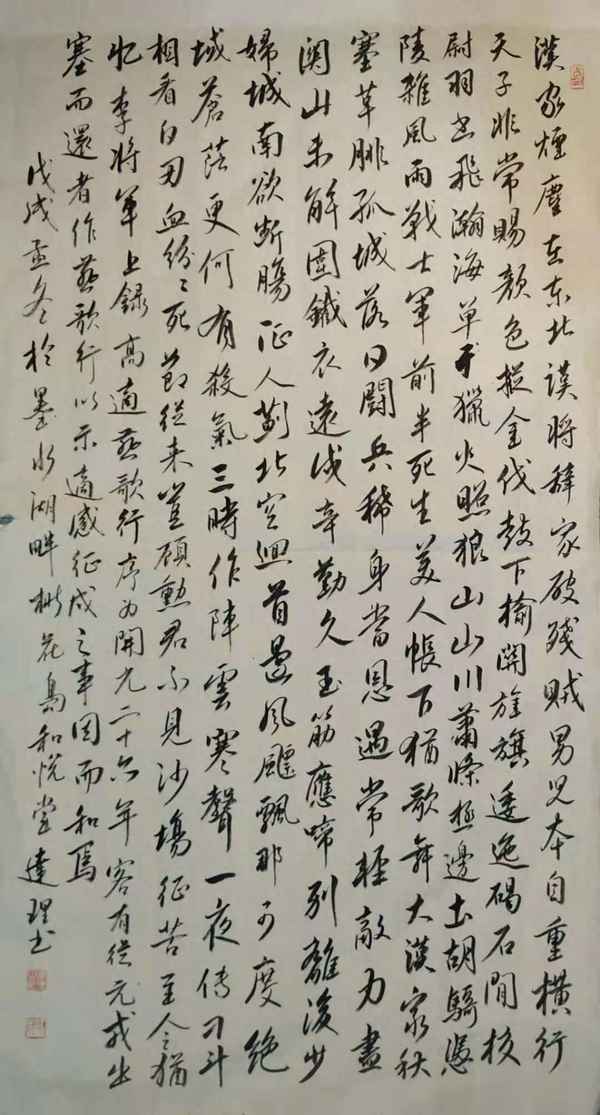 漢家煙塵在東北漢將辭家破殘賊男兒本自重橫行
天子非常賜顏色摐金伐鼓下榆關旌旗逶迤碣石間校
尉羽書飛瀚海單于獵火照狼山山川蕭條極邊土胡騎憑
陵雜風雨戰士軍前半死生美人帳下猶歌舞大漠窮秋
塞草腓孤城落日鬪兵稀身當恩遇常輕敵力盡
関山未解圍鐵衣遠戍辛勤久玉筋應啼別離後少
婦城南欲斷腸征人薊北空迴首邊風飄飄那可度絕
域蒼茫更何有殺氣三時作陣雲寒聲一夜傳刁斗
相看白刃血紛紛死節從來豈顧勳君不見沙場征苦至今猶
憶李將軍上錄高適燕歌行序為開元二十六年客有從元戎出
塞而還者作燕歌行以示適感征戍之事因而和焉
戊戌孟冬於墨水湖畔花鳥和悅堂達理書